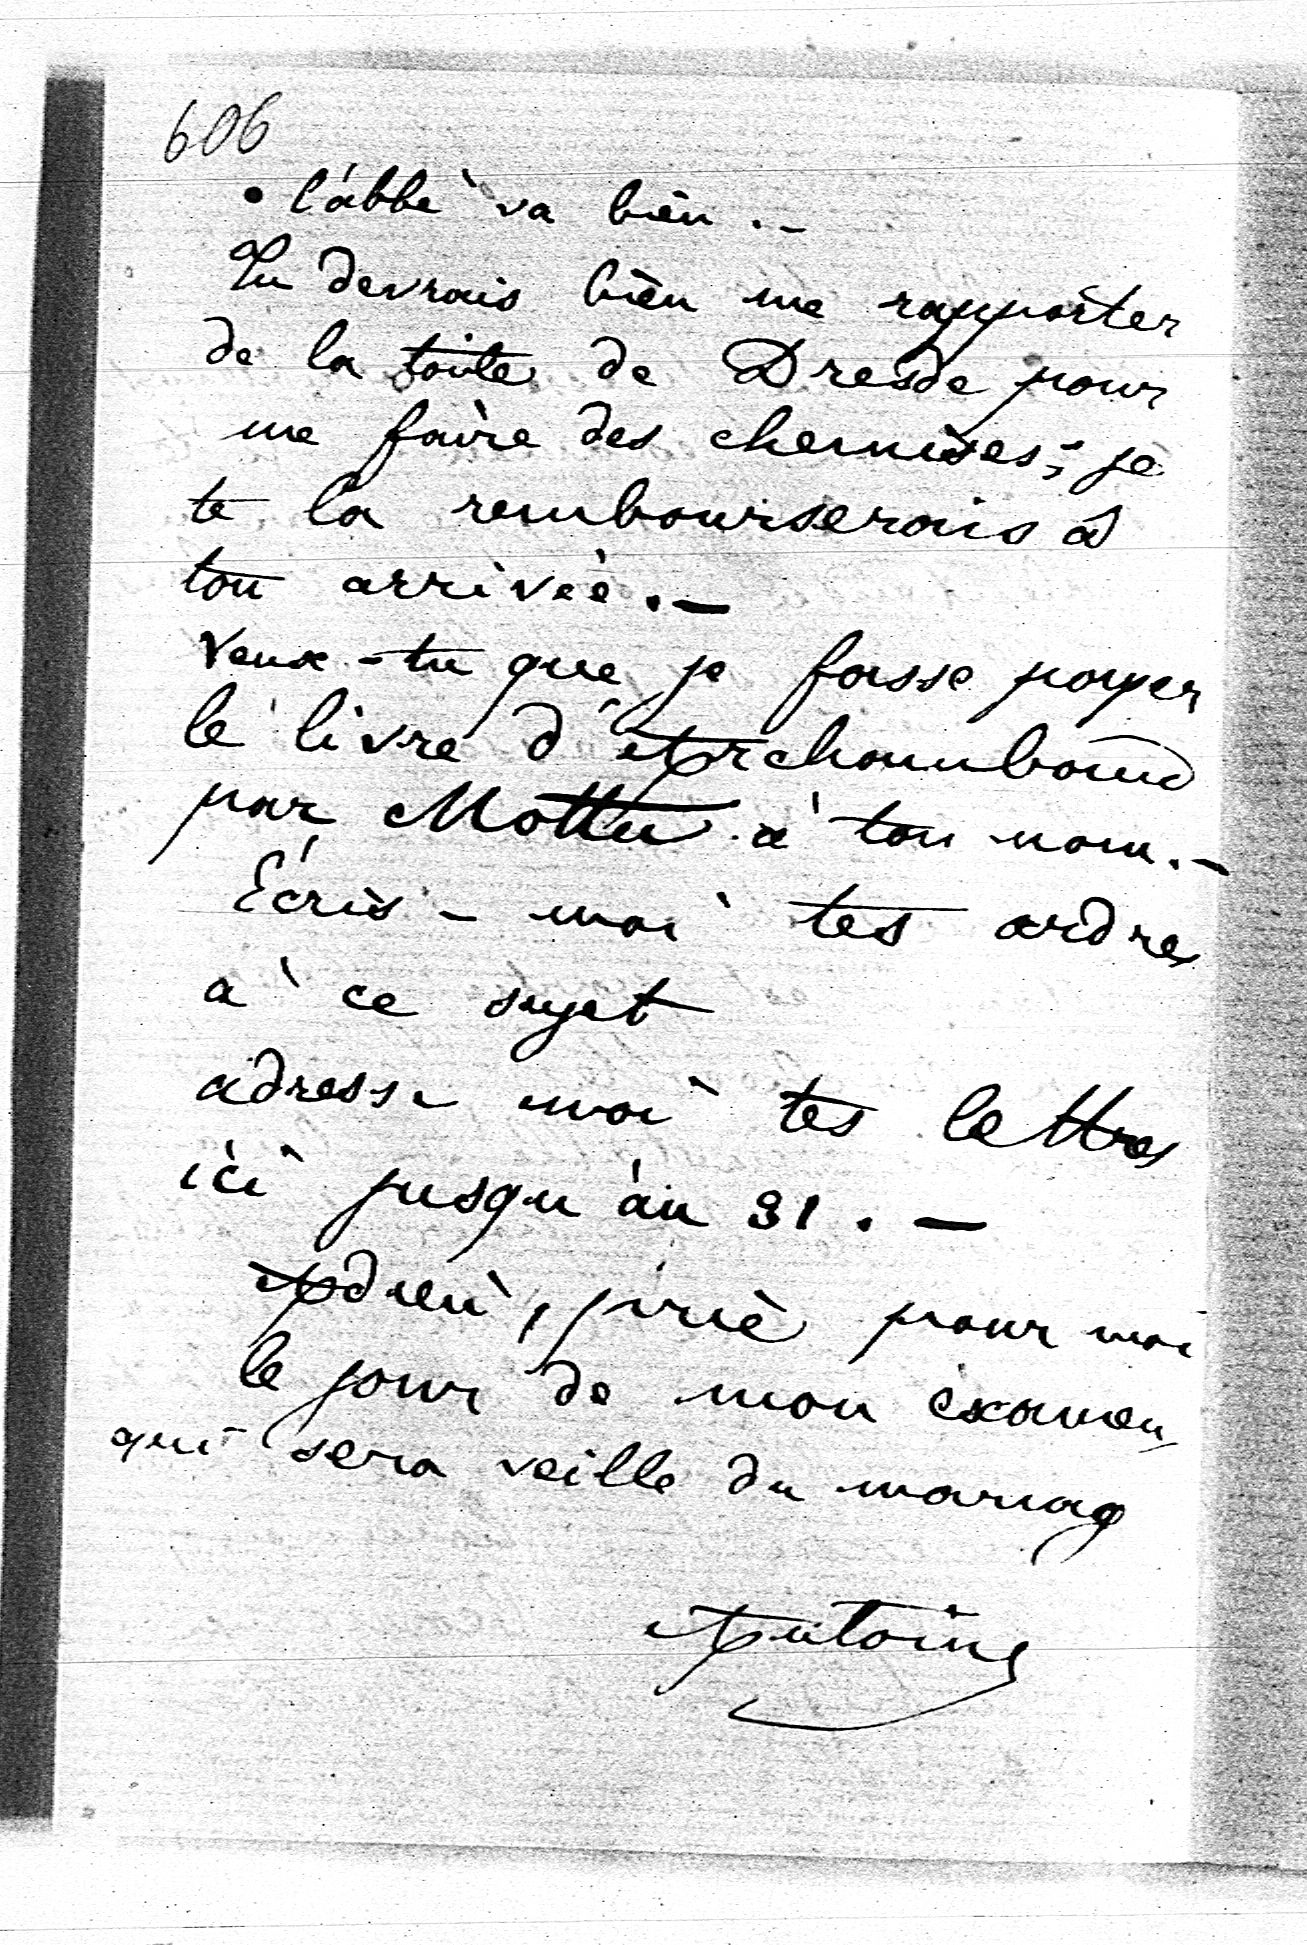 606
• l'abbé va bien. –
Tu devrais bien me rapporter
de la toile de Dresde pour
me faire des chemises; je
te la rembourserais à
ton arrivée. –
Veux-tu que je fasse payer
le livre d'Archambaud
par Mottu à ton nom. –
Écris-moi tes ordres
à ce sujet
adresse moi tes lettres
ici jusqu'au 31. –
Adieu, prie pour moi
le jour de mon examen
qui sera veille du mariage
Antoine